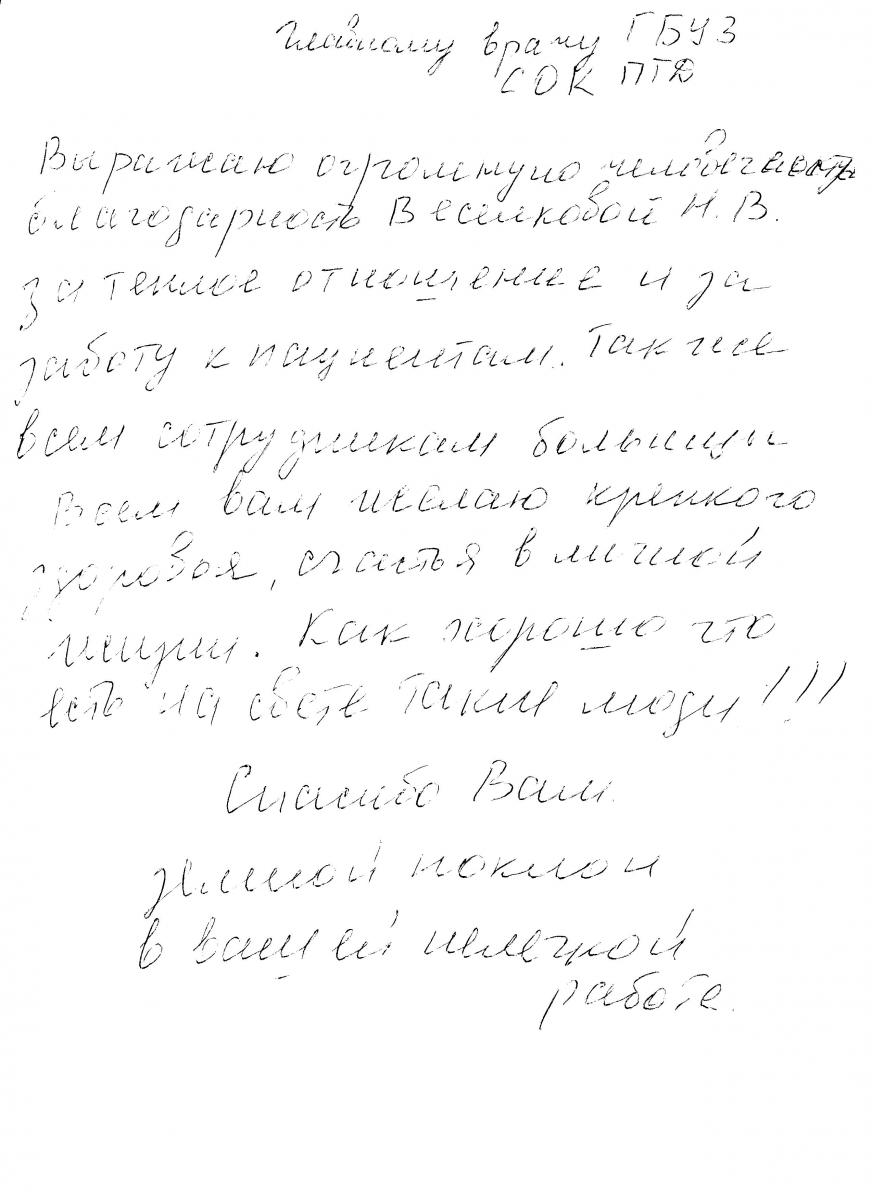 Главному врачу ГБУЗ
СОК ПТД
Выражаю огромную человечность
благодарность Веселковой Н.В.
за теплое отношение и за
заботу к пациентам. Так же
всем сотрудникам больницы
Всем вам желаю крепкого
здоровья, счастья в личной
жизни. Как хорошо что
есть на свете такие люди!!!
Спасибо Вам.
Земной поклон
в вашей нелегкой
работе.